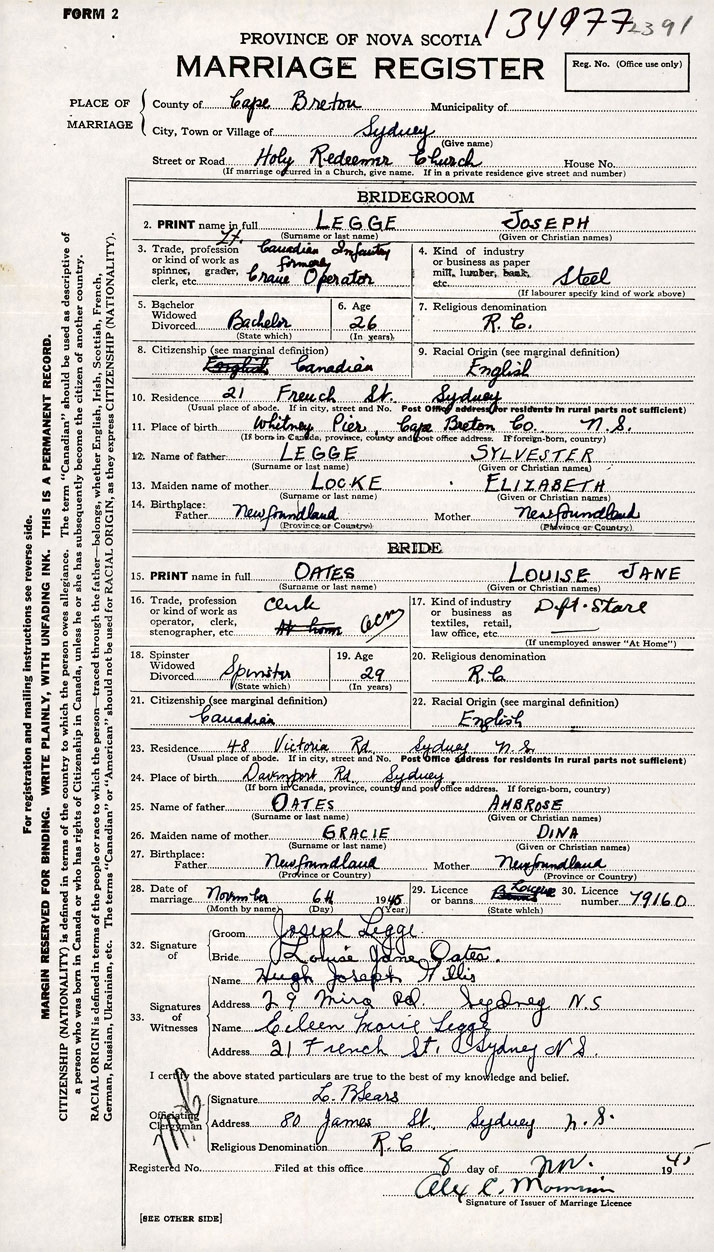 FORM 2
134977 2391
PROVINCE OF NOVA SCOTIA
MARRIAGE REGISTER
Reg. No. (Office use only)
PLACE OF MARRIAGE
County of Cape Breton Municipality of
City, Town or Village of Sydney
(Give name)
Street or Road Holy Redeemer Church House No.
(If marriage occurred in a Church, give name. If in a private residence give street and number)
BRIDEGROOM
2. PRINT name in full LEGGE JOSEPH
(Surname or last name) (Given or Christian names)
3. Trade, profession or kind of work as spinner, grader, clerk, etc. Lt. Canadian Infantry formerly Crane Operator
4. Kind of industry or business as paper mill, lumber, bank, etc. Steel
(If labourer specify kind of work above)
5. Bachelor Widowed Divorced Bachelor
(State which)
6. Age 26
(In years)
7. Religious denomination
R. C.
8. Citizenship (see marginal definition)
English Canadian
9. Racial Origin (see marginal definition)
English
10. Residence 21 French St. Sydney
(Usual place of abode. If in city, street and No. Post Office address for residents in rural parts not sufficient)
11. Place of birth Whitney Pier, Cape Breton Co. N.S.
(If born in Canada, province, county and post office address. If foreign-born, country)
12. Name of father LEGGE SYLVESTER
(Surname or last name) (Given or Christian names)
13. Maiden name of mother LOCKE ELIZABETH
(Surname or last name) (Given or Christian names)
14. Birthplace: Father Newfoundland Mother Newfoundland
(Province or Country) (Province or Country)
BRIDE
15. PRINT name in full OATES LOUISE JANE
(Surname or last name) (Given or Christian names)
16. Trade, profession or kind of work as operator, clerk, stenographer, etc. Clerk At home
17. Kind of industry or business as textiles, retail, law office, etc. Dpt. Store
(If unemployed answer "At Home")
18. Spinster Widowed Divorced Spinster
(State which)
19. Age 29
(In years)
20. Religious denomination
R.C.
21. Citizenship (see marginal definition)
Canadian
22. Racial Origin (see marginal definition)
English
23. Residence 48 Victoria Rd Sydney N.S.
(Usual place of abode. If in city, street and No. Post Office address for residents in rural parts not sufficient)
24. Place of birth Davenport Rd Sydney
(If born in Canada, province, county and post office address. If foreign-born, country)
25. Name of father OATES AMBROSE
(Surname or last name) (Given or Christian names)
26. Maiden name of mother GRACIE DINA
(Surname or last name) (Given or Christian names)
27. Birthplace: Father Newfoundland Mother Newfoundland
(Province or Country) (Province or Country)
28. Date of marriage November 6th 1945
(Month by name) (Day) (Year)
29. Licence or banns
(State which)
30. Licence number 79160
32. Signature of
Groom Joseph Legge
Bride Louise Jane Oates.
33. Signatures of Witnesses
Name Hugh Joseph Ellis
Address 29 Mira Rd. Sydney N.S
Name Eileen Marie Legge
Address 21 French St. Sydney N.S.
I certify the above stated particulars are true to the best of my knowledge and belief.
Officiating Clergyman
Signature L. B Sears
Address 80 James St. Sydney N.S.
Religious Denomination R. C
Registered No. Filed at this office 8 day of Nov. 1945
Alex C.
Signature of Issuer of Marriage Licence
[SEE OTHER SIDE]
For registration and mailing instructions see reverse side.
MARGIN RESERVED FOR BINDING. WRITE PLAINLY, WITH UNFADING INK. THIS IS A PERMANENT RECORD.
CITIZENSHIP (NATIONALITY) is defined in terms of the country to which the person owes allegiance. The term "Canadian" should be used as descriptive of
a person who was born in Canada or who has rights of Citizenship in Canada, unless he or she has subsequently become the citizen of another country.
RACIAL ORIGIN is defined in terms of the people or race to which the person—traced through the father—belongs, whether English, Irish, Scottish, French,
German, Russian, Ukrainian, etc. The terms "Canadian" or "American" should not be used for RACIAL ORIGIN, as they express CITIZENSHIP (NATIONALITY).